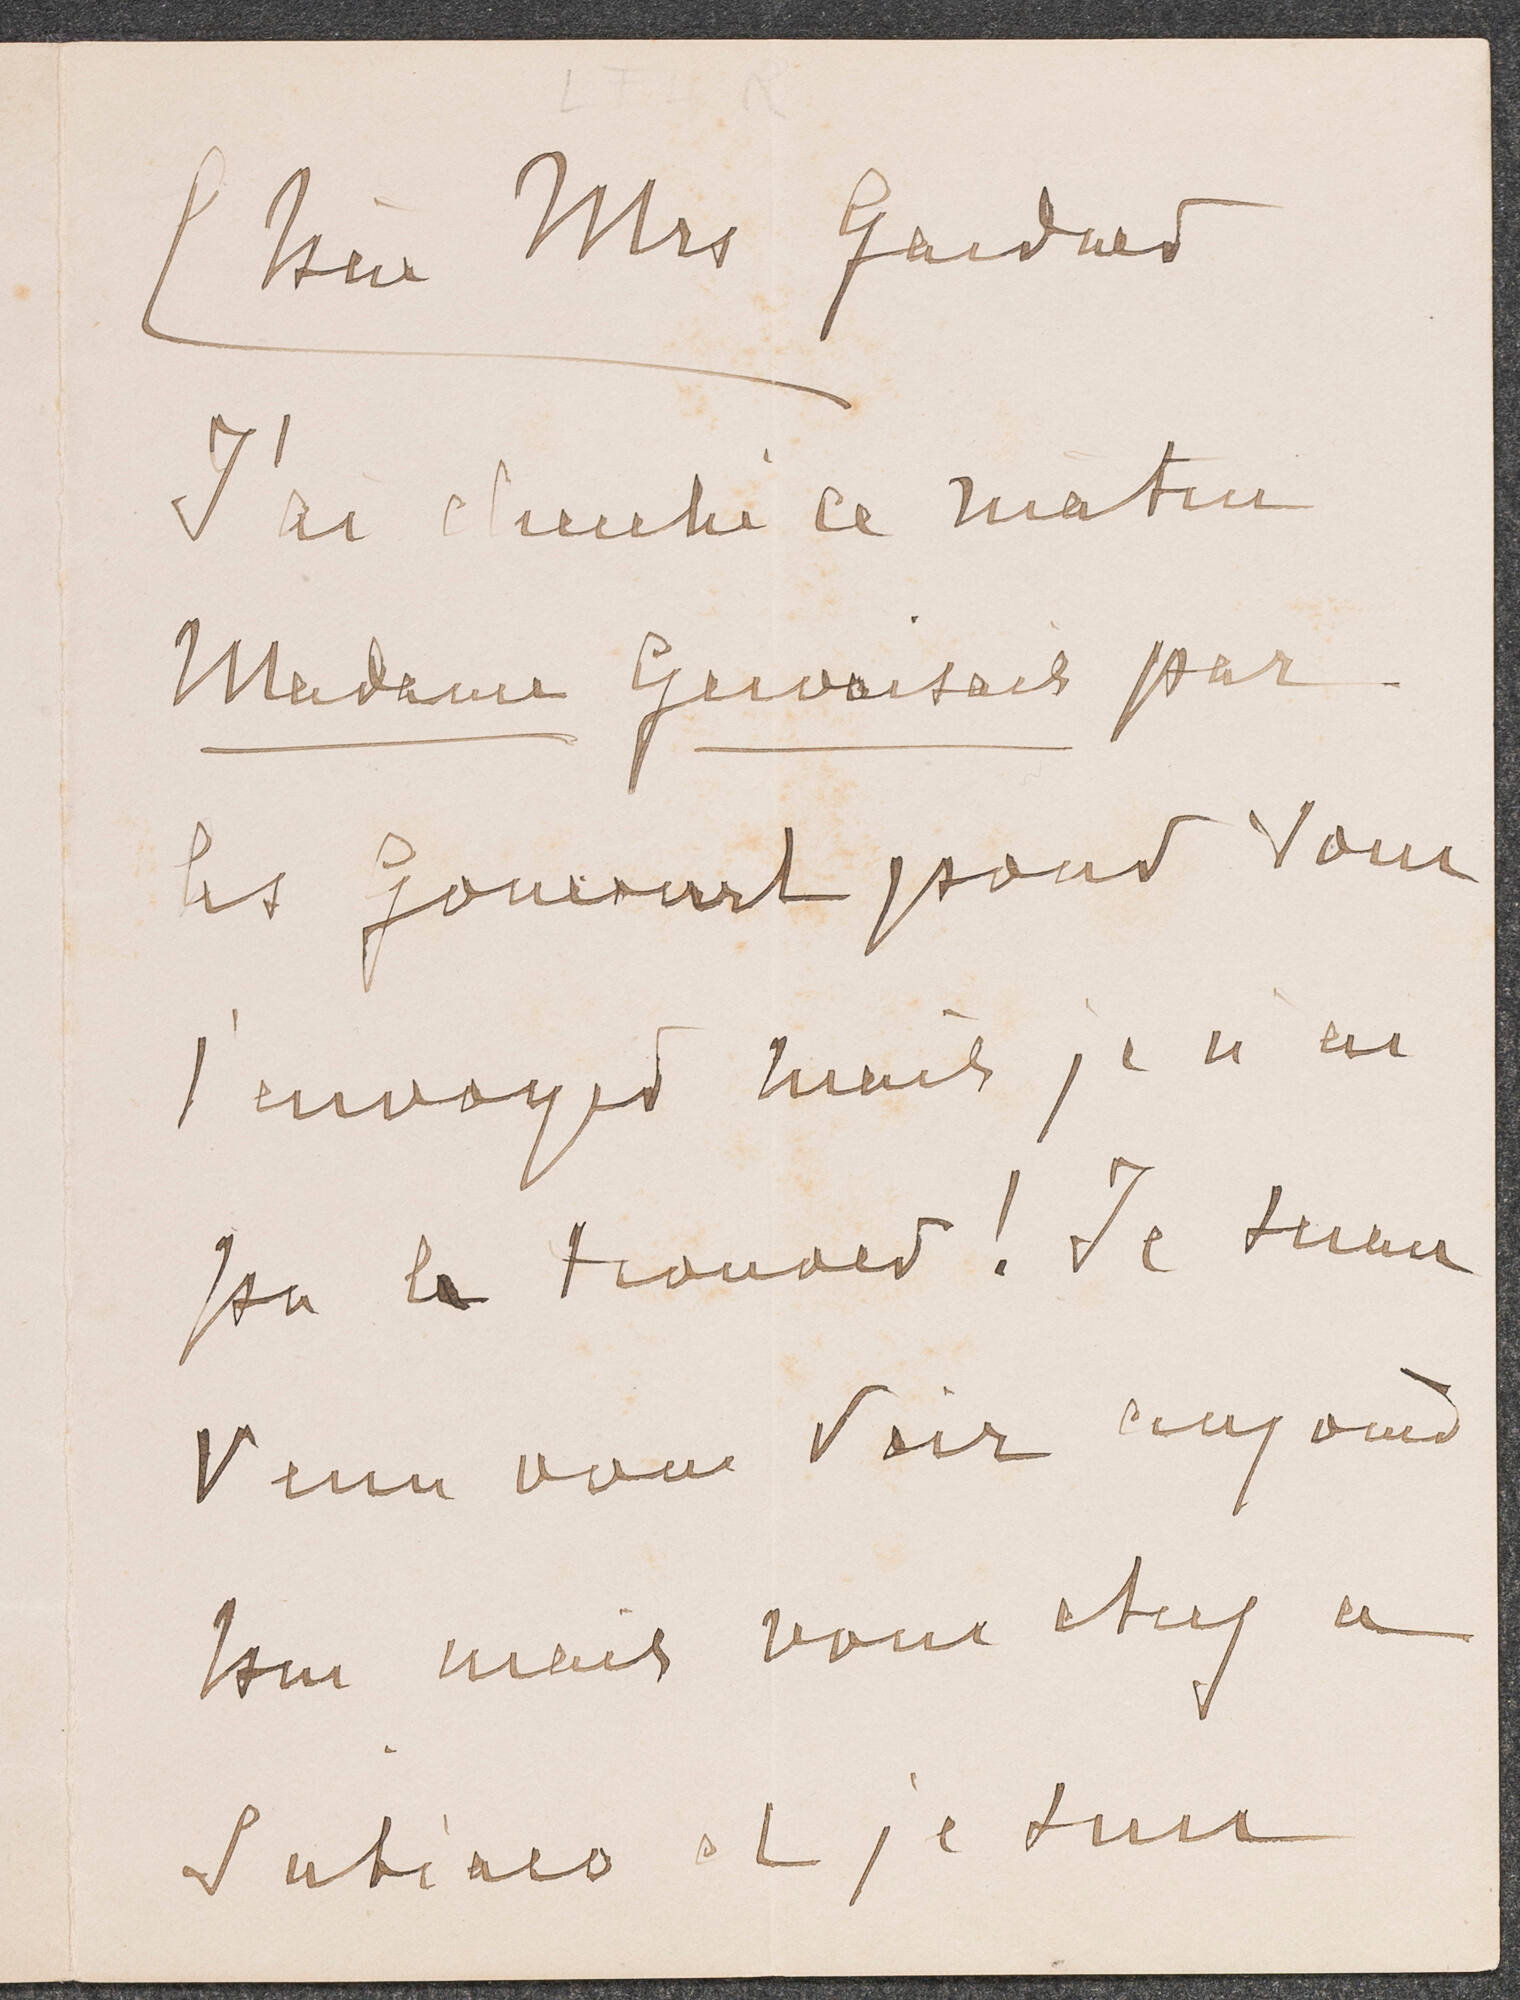 Chère Mrs Gardner
J'ai cherché ce matin
Madame Gervaisais par
les Goncourt pour vous
l'envoyer mais je n'ai
pu le trouver! Je serais
venu vous voir aujourd
hui mais vous etiez a
Subiaco et je suis